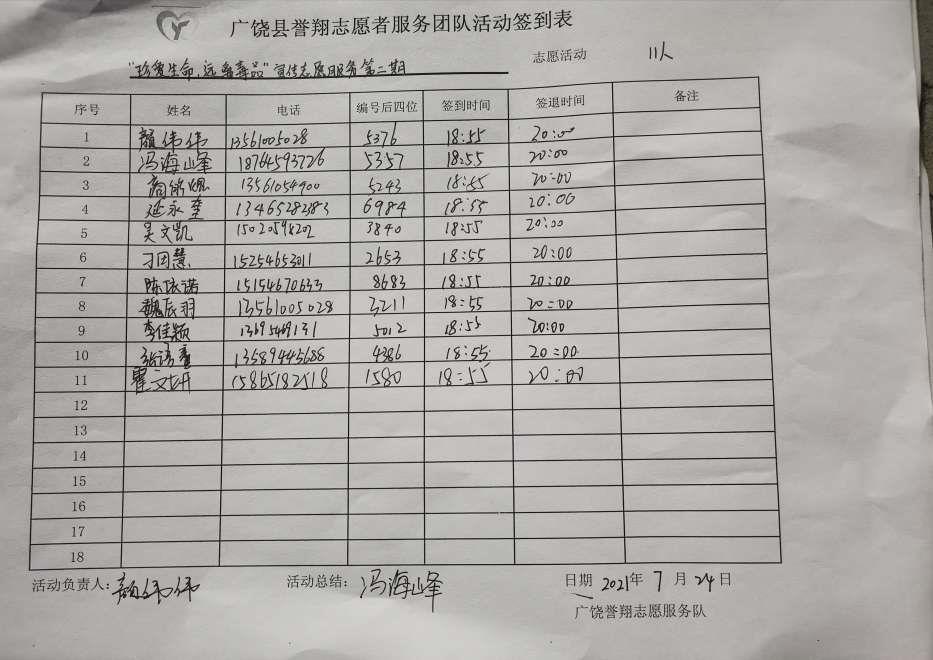 广饶县誉翔志愿者服务团队活动签到表
"珍爱生命,远离毒品"宣传志愿服务第二期 志愿活动 11人
序号 姓名 电话 编号后四位 签到时间 签退时间 备注
1 颜伟伟 13561005028 5376 18:55 20:00
2 冯海峰 18764593726 5357 18:55 20:00
3 13561054900 5243 18:55 20:00
4 延永奎 13465282383 6984 18:55 20:00
5 吴文凯 15020598202 3840 18:55 20:00
6 刁因慧 15254653011 2653 18:55 20:00
7 陈依诺 15154670633 8683 18:55 20:00
8 魏辰羽 13561005028 3211 18:55 20:00
9 李佳颖 5012 18:55 20:00
10 13589445688 4386 18:55 20:00
11 霍文妍 15865182518 1580 18:55 20:00
12
13
14
15
16
17
18
活动负责人: 颜伟伟 活动总结: 冯海峰 日期 2021年 7 月 24 日
广饶誉翔志愿服务队